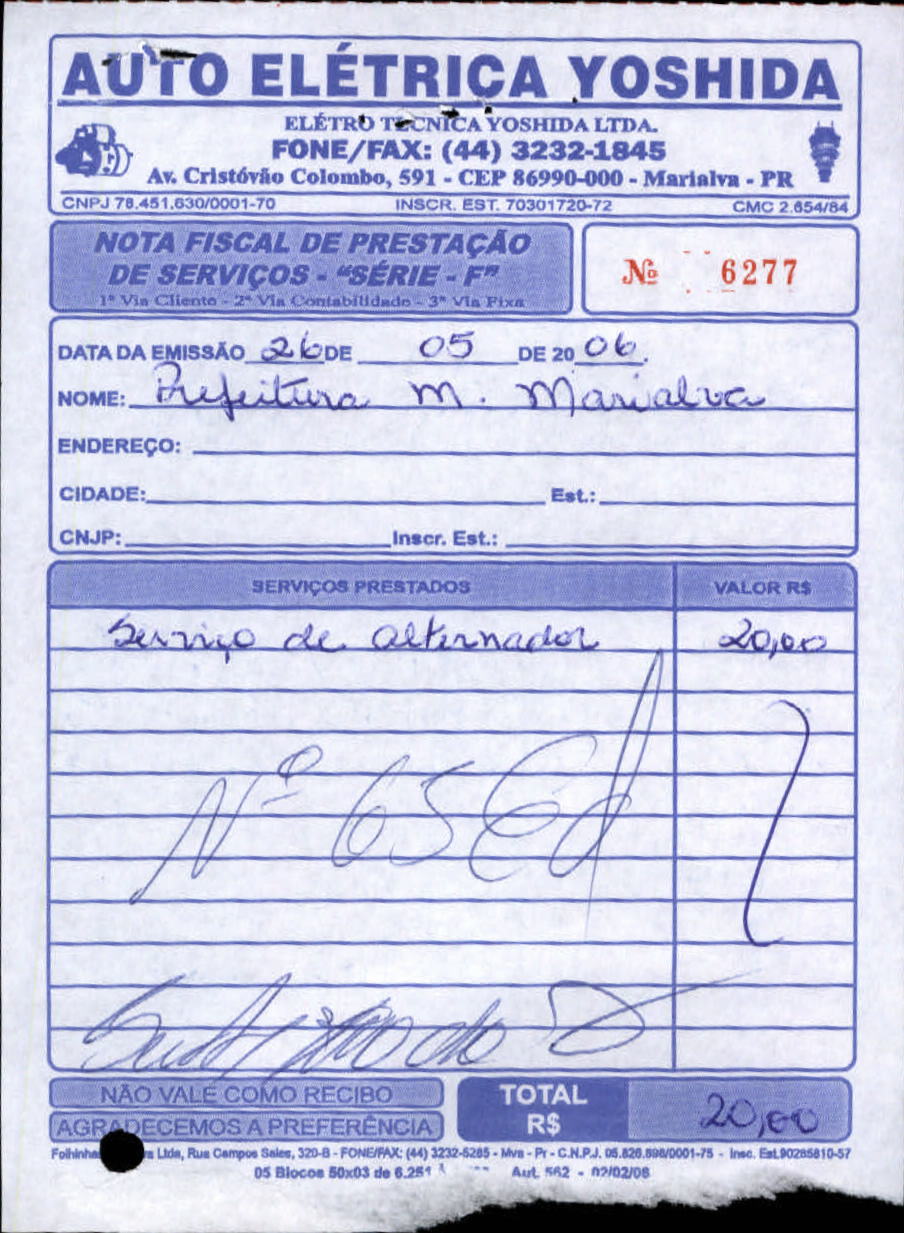 AUTO ELÉTRICA YOSHIDA
ELÉTRO TÉCNICA YOSHIDA LTDA.
FONE/FAX: (44) 3232-1845
Av. Cristóvão Colombo, 591 - CEP 86990-000 - Marialva - PR
CNPJ 78.451.630/0001-70 INSCR. EST. 70301720-72 CMC 2.654/84
NOTA FISCAL DE PRESTAÇÃO
DE SERVIÇOS - "SÉRIE - F"
1ª Via Cliente - 2ª Via Contabilidade - 3ª Via Fixa
Nº 6277
DATA DA EMISSÃO 26 DE 05 DE 20 06.
NOME: Prefeitura M. Marialva
ENDEREÇO:
CIDADE: Est.:
CNJP: Inscr. Est.:
SERVIÇOS PRESTADOS VALOR R$
Serviço de alternador 20,00
Nº 65
NÃO VALE COMO RECIBO
AGRADECEMOS A PREFERÊNCIA
TOTAL
R$ 20,00
Ltda, Rua Campos Sales, 320-B - FONE/FAX: (44) 3232-5265 - Mva - Pr - C.N.P.J. 05.826.898/0001-75 - Insc. Est.90285810-57
05 Blocos 50x03 de 6.251 Aut. 562 - 02/02/06